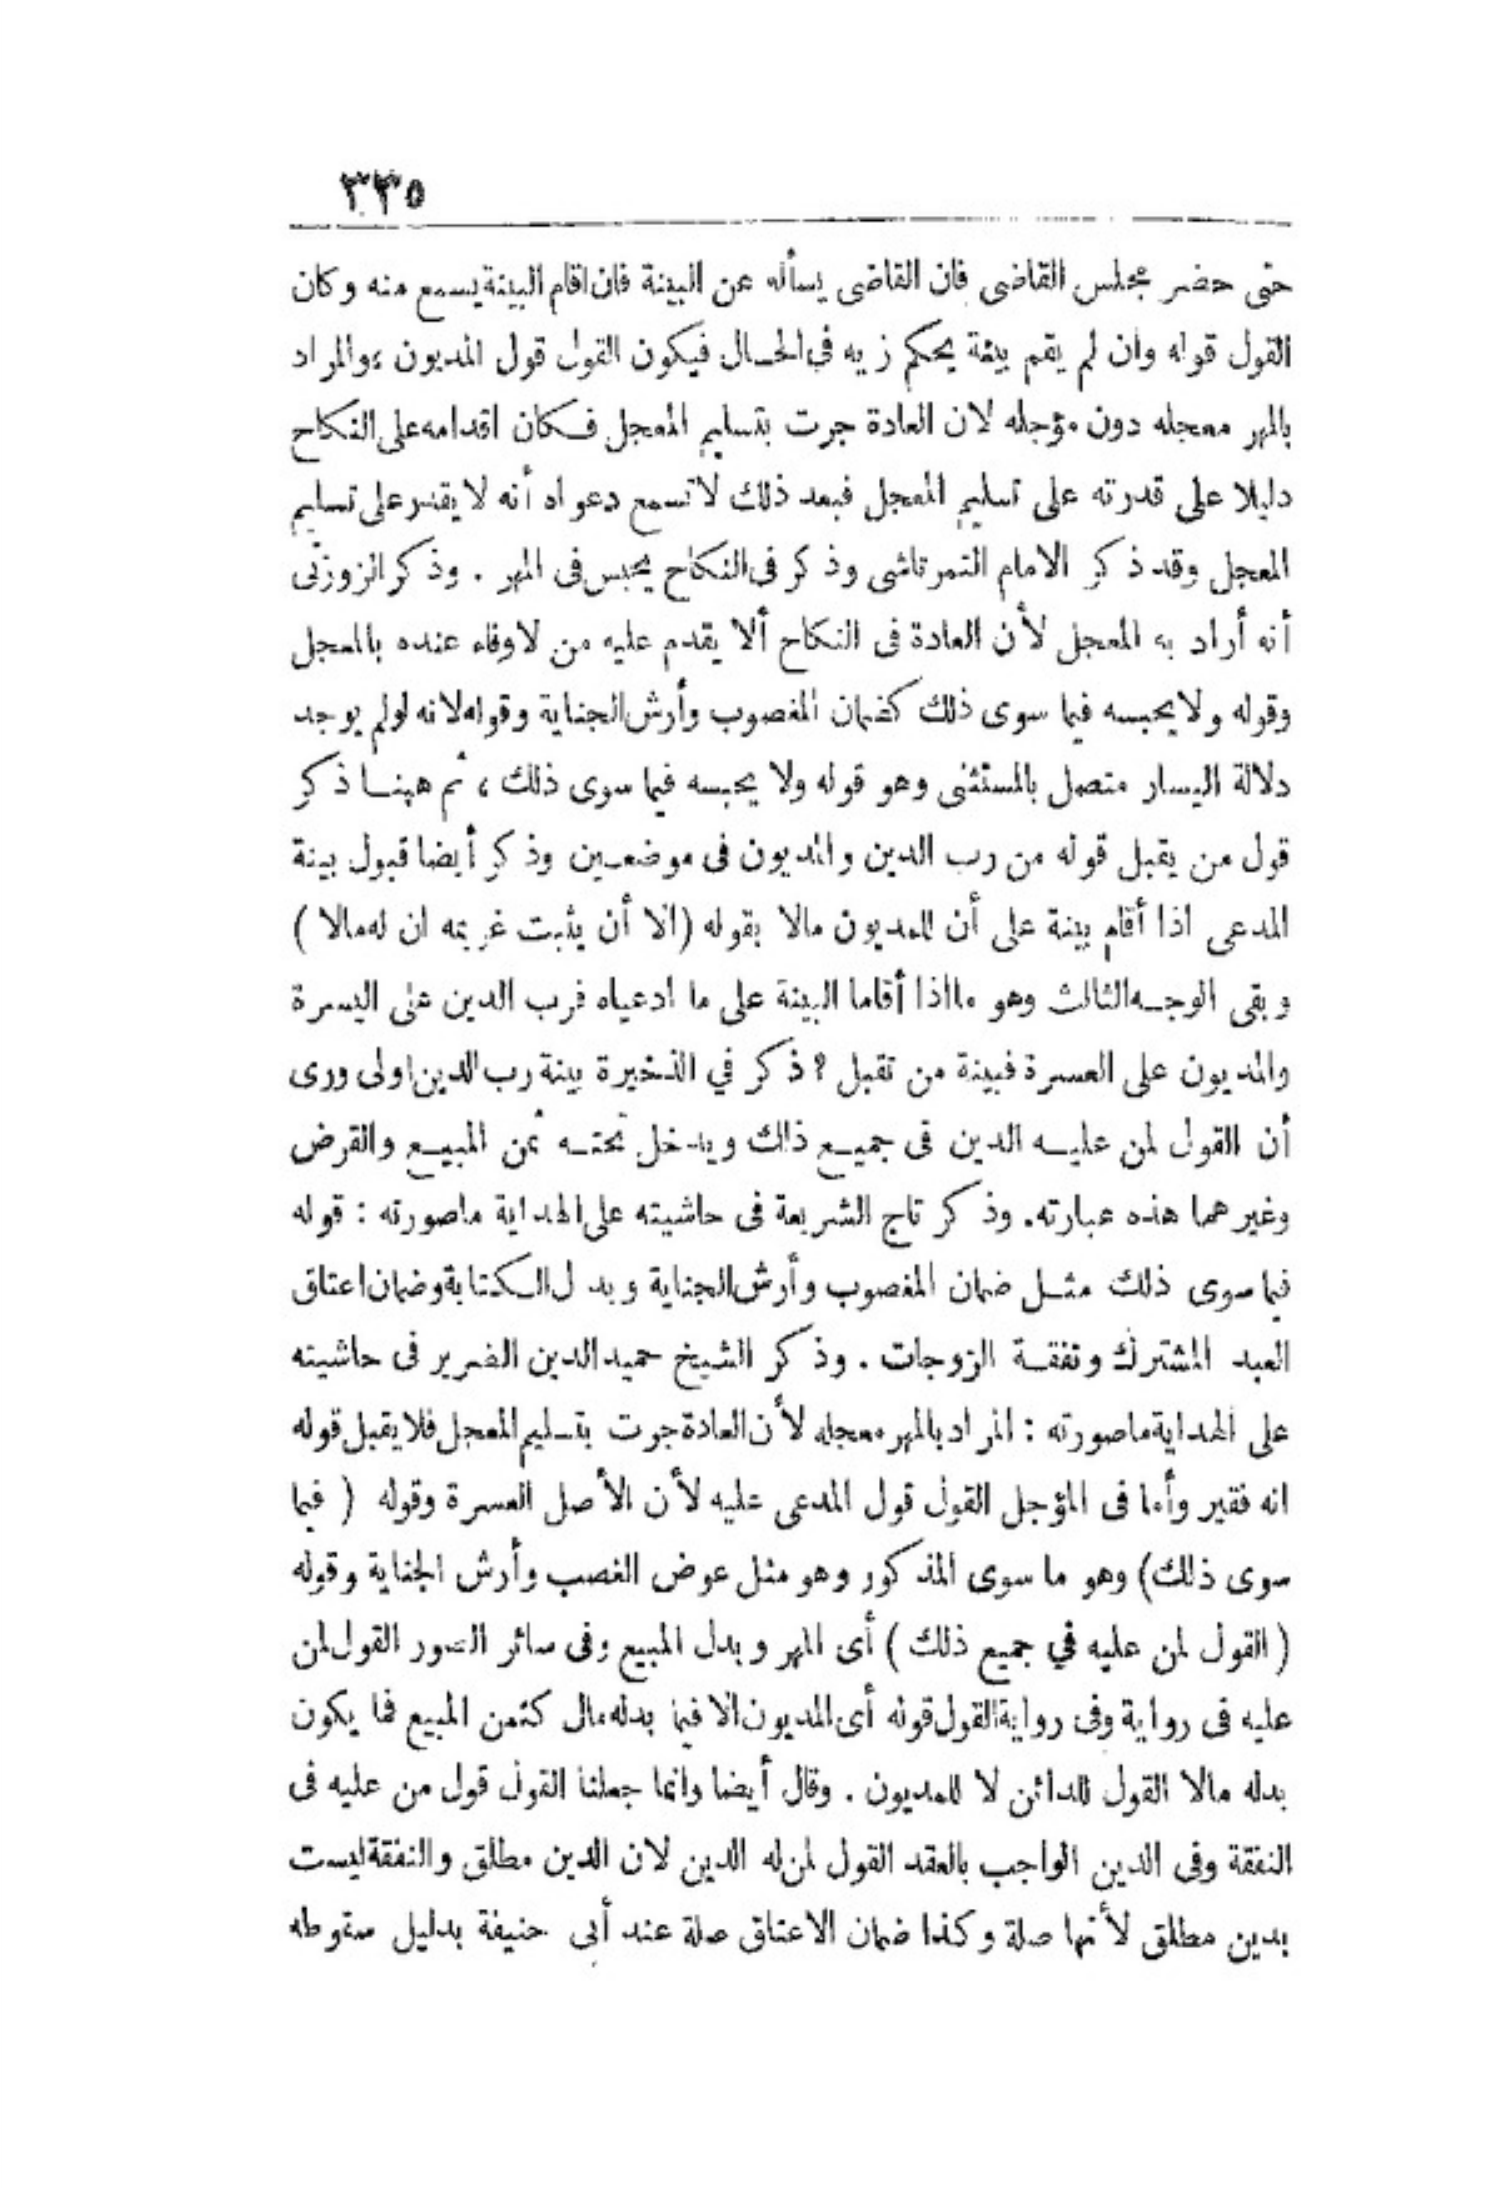 ٣٣٥
حتى حضر مجلس القاضى فان القاضى يسأله عن البينة فان اقام البينة يسمع منه وكان
القول قوله وان لم يقم بينة يحكم زيه فى الحال فيكون القول قول المديون ، والمراد
بالمهر معجله دون مؤجله لان العادة جرت بتسليم المعجل فكان اقدامه على النكاح
دليلا على قدرته على تسليم المعجل فبعد ذلك لا تسمع دعواه أنه لا يقدر على تسليم
المعجل وقد ذكر الامام التمرتاشى وذكر فى النكاح يحبس فى المهر . وذكر الزوزنى
أنه أراد به المعجل لأن العادة فى النكاح ألا يقدم عليه من لا وفاء عنده بالمعجل
وقوله ولا يحبسه فيما سوى ذلك كضمان المغصوب وأرش الجناية وقوله لانه لو لم يوجد
دلالة اليسار متصل بالمستثنى وهو قوله ولا يحبسه فيما سوى ذلك ، ثم ههنا ذكر
قول من يقبل قوله من رب الدين والمديون فى موضعين وذكر أيضا قبول بينة
المدعى اذا أقام بينة على أن للمديون مالا بقوله (الا أن يثبت غريمه ان له مالا )
وبقى الوجه الثالث وهو ما اذا أقاما البينة على ما ادعياه فرب الدين على اليسرة
والمديون على العسرة فبينة من تقبل ؟ ذكر في الذخيرة بينة رب الدين اولى وروى
أن القول لمن عليه الدين فى جميع ذلك ويدخل تحته ثمن المبيع والقرض
وغيرهما هذه عبارته. وذكر تاج الشريعة فى حاشيته على الهداية ما صورته : قوله
فيما سوى ذلك مثل ضمان المغصوب وأرش الجناية وبدل الكتابة وضمان اعتاق
العبد المشترك ونفقة الزوجات . وذكر الشيخ حميد الدين الضرير فى حاشيته
على الهداية ما صورته : المراد بالمهر معجله لأن العادة جرت بتسليم المعجل فلا يقبل قوله
انه فقير وأما فى المؤجل القول قول المدعى عليه لأن الأصل العسرة وقوله ( فيما
سوى ذلك) وهو ما سوى المذكور وهو مثل عوض الغصب وأرش الجناية وقوله
( القول لمن عليه في جميع ذلك ) أى المهر وبدل المبيع وفى سائر الصور القول لمن
عليه فى رواية وفى رواية القول قوله أى المديون الا فيما بدله مال كثمن المبيع فما يكون
بدله مالا القول للدائن لا للمديون . وقال أيضا وانما جعلنا القول قول من عليه فى
النفقة وفى الدين الواجب بالعقد القول لمن له الدين لان الدين مطلق والنفقة ليست
بدين مطلق لأنها صلة وكذا ضمان الاعتاق صلة عند أبى حنيفة بدليل سقوطه